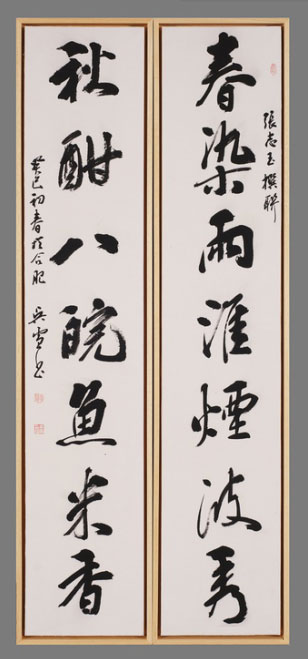 張志玉撰聯
春染兩淮煙波秀
秋酣八皖魚米香
癸巳初春於合肥 吳雪書